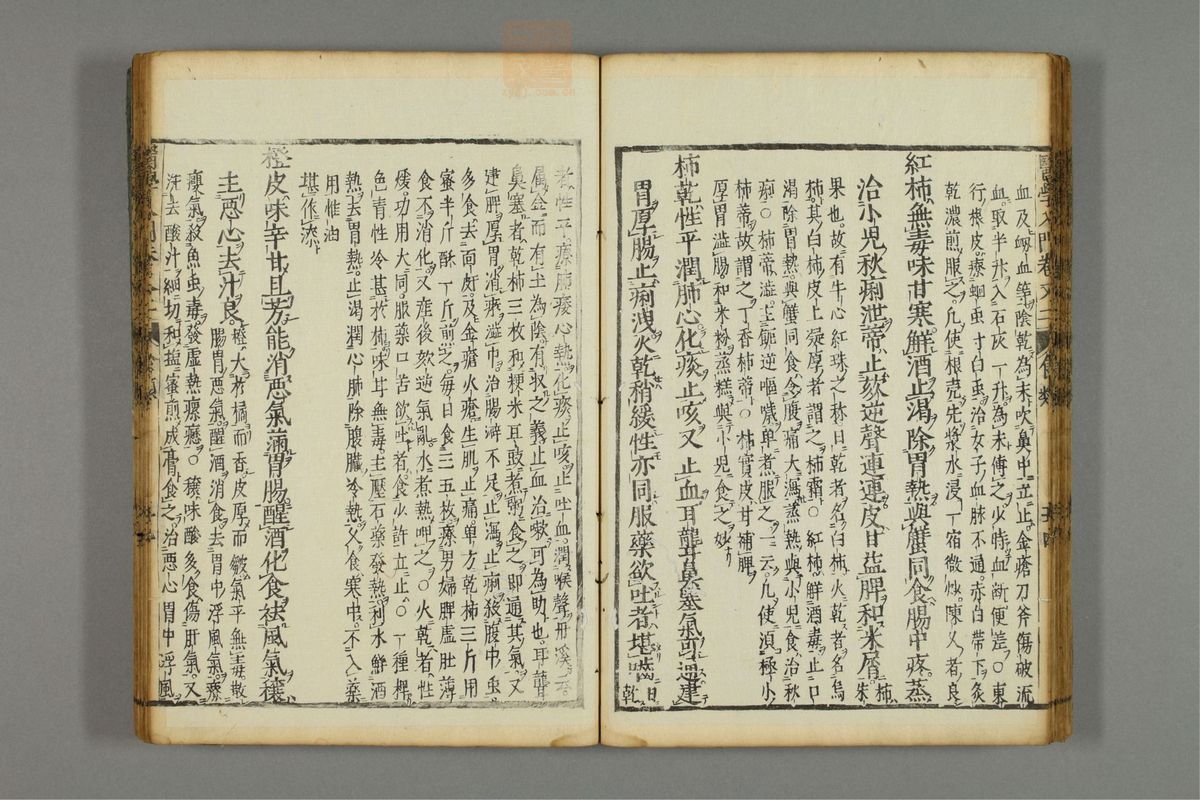 血及衂血等陰乾為末吹鼻中立止金瘡刀斧傷破流
血取半升入石灰一升為末傅之少時血斷便差○東
行根皮療蛔虫寸白虫治女子血脉不通赤白帯下灸
乾濃煎服之凡使根殼先漿水浸一宿微炒陳久者良
紅柿無毒味甘寒觧酒止渴除胃熱與蟹同食腸中疼蒸
治小児秋痢泄蒂止咳逆聲連連皮甘益脾和米屑
柿朱
果也故有牛心紅珠之称日乾者名白柿火乾者名烏
柿其白柿皮上凝厚者謂之柿霜○紅柿觧酒毒止口
渴除胃熱與蟹同食令腹痛大瀉蒸熱與小児食治秋
痢○柿蒂澁主呃逆嘔噦单煮服之一云凡使湏極小
柿蒂故謂之丁香柿蒂○柿實皮甘補脾
厚胃澁腸和米粉蒸糕與小児食之妙
柿乾性平潤肺心化痰止咳又止血耳聾鼻塞氣可通建
胃厚腸止痢洩火乾稍緩性亦同服藥欲吐者堪嚼
日乾
者性平療肺痿心熱化痰止咳止吐血潤喉聲丹溪云
属金而有土為陰有収之義止血治嗽可為助也耳聾
鼻塞者乾柿三枚和粳米豆豉煮粥食之即通其氣又
建脾厚胃消宿澁中治腸澼不足止瀉止痢殺腹中虫
多食去面䵟及金瘡火瘡生肌止痛单方乾柿三斤用
蜜半斤酥一斤煎之每日食三五枚療男婦脾虛肚薄
食不消化又産後欬逆氣亂水煮熱呷之○火乾者性
緩功用大同服藥口苦欲吐者食少許立止○一種椑
色青性冷甚於柿味甘無毒主壓石藥發熱利水觧酒
熱去胃熱止渴潤心肺除腹臓冷熱久食寒中不入藥
用惟油
堪作漆
橙皮味辛甘且芳能消悪氣滿胃腸醒酒化食祛風氣穰
主悪心去汁良
橙大於橘而香皮厚而皺氣平無毒散
腸胃悪氣醒酒消食去胃中浮風氣療
癭氣殺魚虫毒發虛熱瘰癧○穰味酸多食傷肝氣又
汗去酸汁細切和塩蜜煎成膏食之治悪心胃中浮風